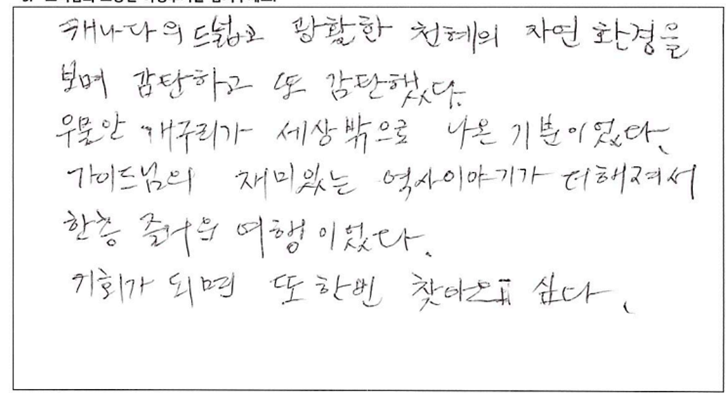 캐나다의 드넓고 광활한 천혜의 자연 환경을
보며 감탄하고 또 감탄했다.
우물안 개구리가 세상 밖으로 나온 기분이었다.
가이드님의 재미있는 역사이야기가 더해져서
한층 즐거운 여행이었다.
기회가 되면 또 한번 찾아오고 싶다.